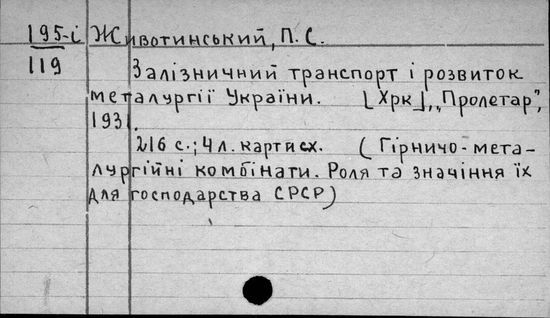 195-і Животинський, П. С.
119 Залізничний транспорт і розвиток
металургії України. [Хрк], „Пролетар",
1931.
216 с.; 4 л. карт и сх. (Гірничо-мета-
лургійні комбінати. Роля та значіння їх
для господарства СРСР)